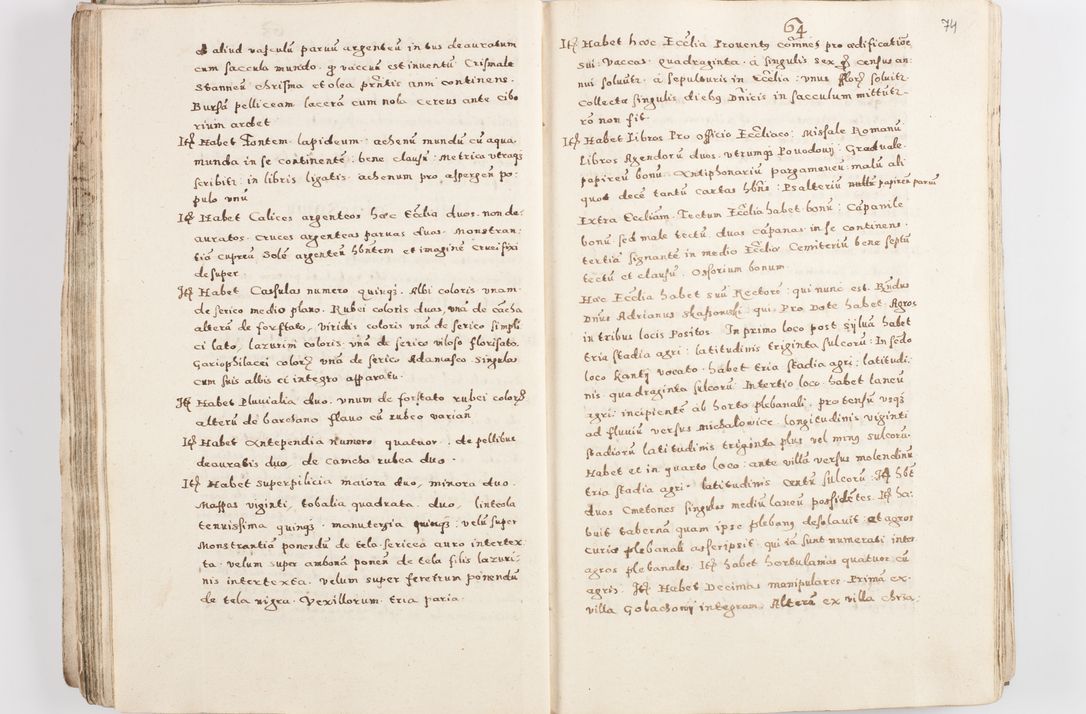 et aliud vasculũ parvũ argenteũ intus deauratum
cum saccula mundo, ꝙ vaccuũ est inventũ. Crismale
stanneũ chrisma et olea pr̃ntis anni continens.
Bursã pelliceam lacerã cum nola. Cereus ante cibo
rium ardet
Itꝫ Habet Fontem lapideum: ahenũ mundũ cũ aqua
munda in se continentẽ: bene clausũ. Metrica utraqꝫ
scribitꝛ in libris ligatis. ahenum pro aspergen̄ po:
pulo unũ
Itꝫ Habet Calices argenteos hæc Eccl̃ia duos. non de:
auratos. Cruces argenteas parvas duas. Monstran:
tiã cupreũ Solẽ argenteũ hñtem et imaginẽ Crucifixi
desuper.
Itꝫ Habet Casulas numero quinqꝫ. Albi coloris unam
de serico medio plano. Rubei coloris duas, unã de cacha
alterã de forstato, Viridis coloris unã de serico simpli
ci lato, lazurini coloris unã de serico viloso florisato.
Gariophilacei colorꝫ unã de serico Adamasco. Singulas
cum suis albis et integro apparatu.
Itꝫ Habet Pluvialia duo. unum de forstato rubei colorꝫ
alterũ de barchano flavo cũ rubeo variañ
Itꝫ Habet Antependia numero quatuor. de pellibus
deauratis duo, de camcha rubea duo.
Itꝫ Habet superpilicia maiora duo, minora duo.
Mappas viginti, tobalia quadrata duo, linteola
tenuissima quinqꝫ. manutergia quinqꝫ: velũ super
Monstrantiã ponendũ de tela sericea auro intertex
ta. velum super ambonã ponen̄ de tela filis lazuri:
nis intertexta. velum super feretrum ponendũ
de tela nigra. Vexillorum tria paria.
64
74
Itꝫ Habet hæc Eccl̃ia Proventꝰ com̃nes pro ædificatiõe
sui: Vaccas quadraginta. á singulis sex gꝫ census an:
nui solvũtꝛ. á sepulturis in Eccl̃ia: unus florꝫ solvitꝛ.
Collecta singulis diebꝰ Dñicis in sacculum mittũtꝛ.
rõ non fit.
Itꝫ Habet Libros Pro officio Eccl̃iaco: Missale Romanũ
Libros Agendorũ duos. utrumqꝫ Povodovij. Graduale
papireũ bonũ. Antiphonariũ pargameneũ malũ ali
quot decẽ tantũ cartas hñs: Psalteriũ papireũ parvũ
Extra Eccliam. Tectum Eccl̃ia habet bonũ: Cãpanile
bonũ sed male tectũ. duas cãpanas in se continens.
tertiã signantẽ in medio Eccl̃ia. Cemiteriũ bene septũ
tectũ et clausũ. Ossorium bonum.
Hæc Eccl̃ia habet suũ Rectorẽ: qui nunc est. Rñdus
Dñus Adrianus Skapowski: qui Pro Dote habet: Agros
in tribus locis Positos. In primo loco post sylvã habet
tria stadia agri: latitudinis triginta sulcorũ: In sedo
loco Kantij vocato. habet tria stadia agri: latitudi:
nis quadraginta sulcorũ: In tertio loco. habet laneũ
agri: incipientẽ ab horto plebanali: protensũ usqꝫ
ad fluviũ versus Michalowice. longitudinis viginti
stadiorũ latitudinis triginta plus vel minꝰ sulcorũ.
Habet et in quarto loco: ante villã versus molendinũ
tria stadia agri. latitudinis centũ sulcorũ: Itꝫ hẽt
duos Cmetones singulos mediũ laneũ possidẽtes. Itꝫ ha:
buit tabernã quam ipse plebanꝰ desolavit: et agros
curiæ plebanali ascripsit. qui iã sunt numerati inter
agros plebanales. Itꝫ habet hortulanias quatuor cũ
agris. Itꝫ Habet Decimas manipulares. Primã ex
villa Golachowij integram. Alterã ex villa Chria: